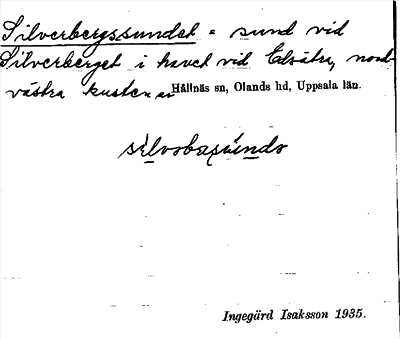 Silverbergssundet = sund vid
Silverberget i havet vid Edsätra, nord-
västra kusten av Hållnäs sn, Olands hd, Uppsala län.
Ingegärd Isaksson 1935.